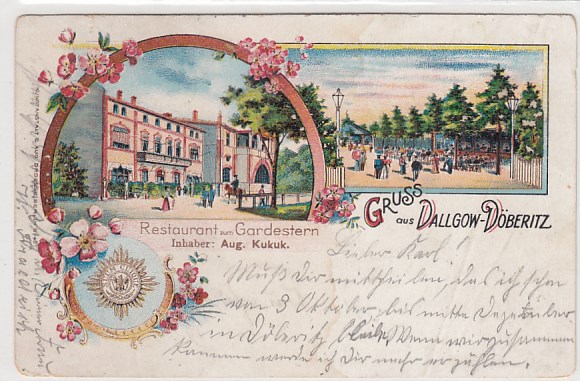 Restaurant zum Gardestern
Inhaber: Aug. Kukuk.
GRUSS
aus DALLGOW-DÖBERITZ
Lieber Karl!
Muß Dir mittheilen, das ich schon
von 3 Oktober bis mitte Dezember
in Döberitz bleibe Wenn wir zusammen
kommen werde ich Dir mehr erzählen.